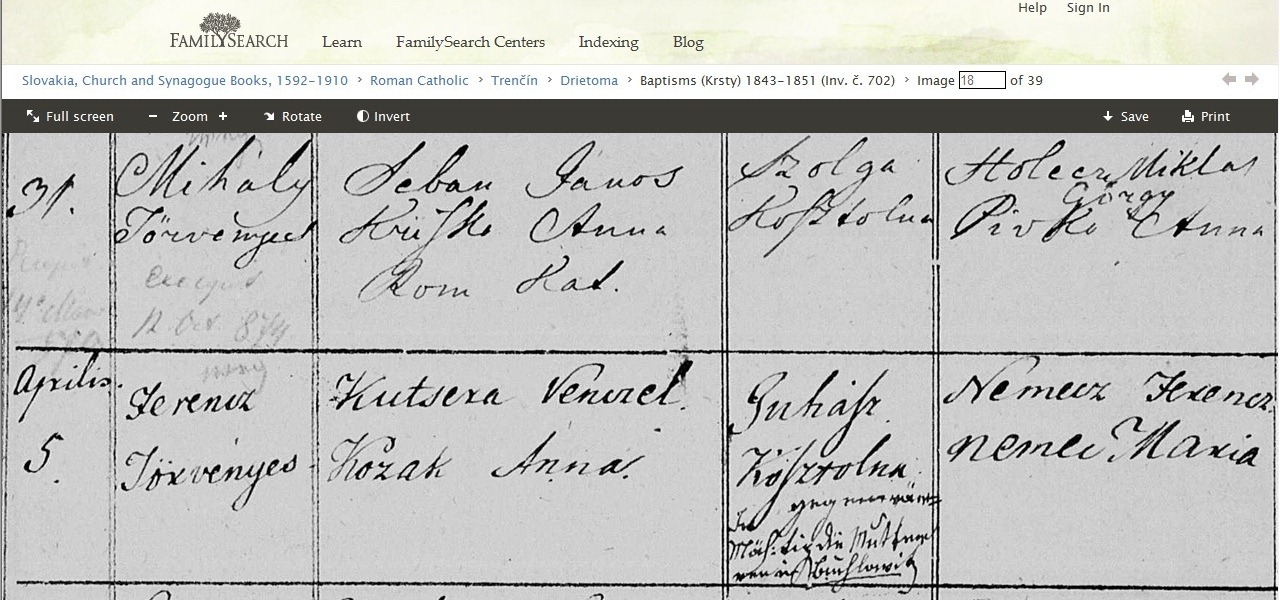 Help Sign In
FAMILYSEARCH Learn FamilySearch Centers Indexing Blog
Slovakia, Church and Synagogue Books, 1592–1910 > Roman Catholic > Trenčín > Drietoma > Baptisms (Krsty) 1843–1851 (Inv. č. 702) > Image 18 of 39
Full screen − Zoom + Rotate Invert Save Print
31.
Mihály
Törvényes
12 Oct. 874
Seban János
Anna
Rom Kat.
Szolga
Kosztolna
Holecz Miklas
György
Pivko Anna
Aprilis.
5.
Ferencz
Törvényes
Kutsera Venczel.
Kozak Anna.
Juhász
Kosztolna
gegenwär=
die Mutter
Buchlowitz
Nemecz Ferencz.
nemec Maria